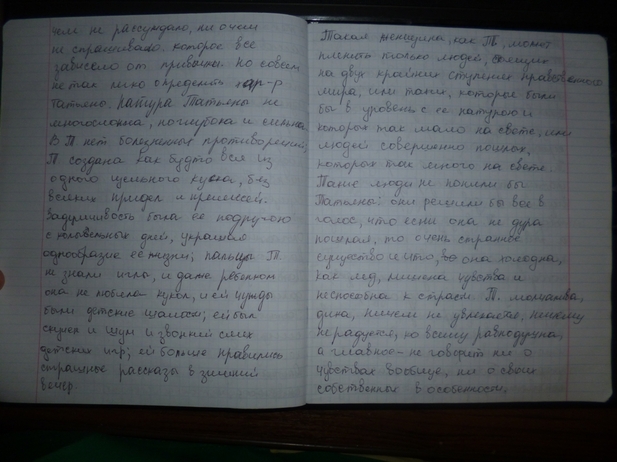 чем не рассуждало, ни о чем
не спрашивало. которое все
зависело от привычки. Но совсем
не так легко определить хар-р
Татьяны. Натура Татьяны не
многосложна, но глубока и сильна
В Т. нет болезненных противоречий,
Т создана как будто вся из
одного цельного куска, без
всяких придел и примесей.
Задумчивость была ее подругою
с колыбельных дней, украшая
однообразие ее жизни; пальцы Т.
не знали иглы, и даже ребенком
она не любила кукол, и ей чужды
были детские шалости; ей был
скучен и шум и звонкий смех
детских игр; ей больше нравились
страшные рассказы в зимний
вечер.
Такая женщина, как Т, может
пленить только людей, стоящих
на двух крайних ступенях нравственного
мира, или таких, которые были
бы в уровень с ее натурою и
которых так мало на свете, или
людей совершенно пошлых,
которых так много на свете.
Такие люди не поняли бы
Татьяны: они решили бы все в
голос, что если она не дура
пошлая, то очень странное
существо и что, она холодна,
как лед, лишена чувства и
неспособна к страсти. Т. молчалива,
дика, ничем не увлекается, ничему
не радуется, ко всему равнодушна,
а главное - не говорит ни о
чувствах вообще, ни о своих
собственных в особенности,